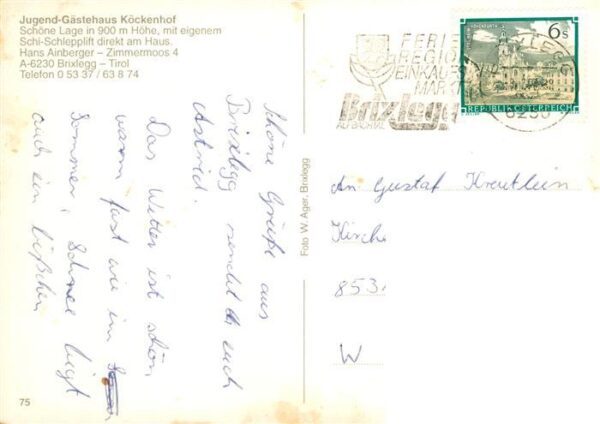 Jugend-Gästehaus Köckenhof
Schöne Lage in 900 m Höhe, mit eigenem
Schi-Schlepplift direkt am Haus.
Hans Ainberger – Zimmermoos 4
A-6230 Brixlegg – Tirol
Telefon 0 53 37 / 63 8 74
schöne Grüße aus
Brixlegg sendet euch
Astrid.
Das Wetter ist schön,
warm fast wie im
Sommer, Schnee liegt
auch ein bißchen
75
Foto W. Ager, Brixlegg
FERIE
REGION
EINKAUFS
MARKT
Brixlegg
6230
6s
REPUBLIK ÖSTERREICH
An Gustaf Kreutlein
Kirche
853
W